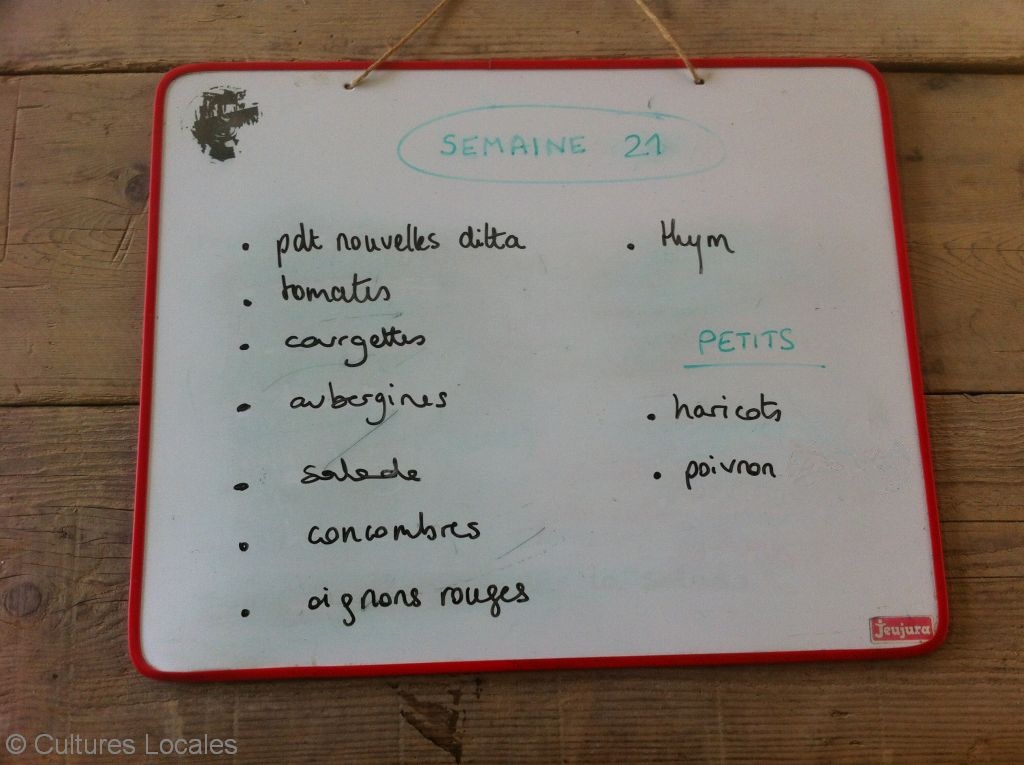 SEMAINE 21
• pdt nouvelles ditta
• tomates
• courgettes
• aubergines
• salade
• concombres
• oignons rouges
• thym
PETITS
• haricots
• poivron
Jeujura
© Cultures Locales